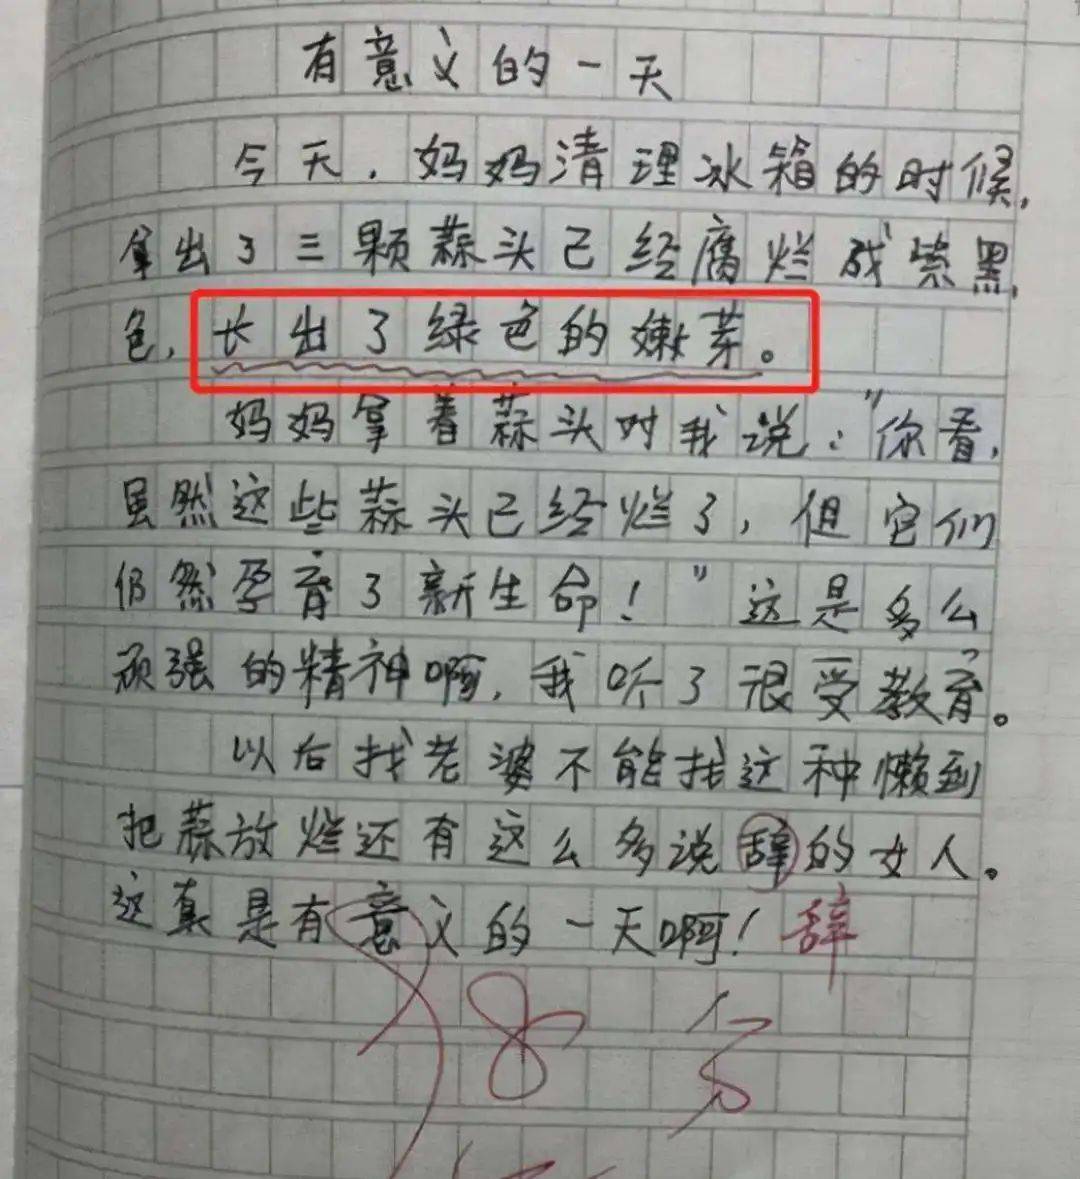 有意义的一天
今天，妈妈清理冰箱的时候，
拿出了三颗蒜头已经腐烂成紫黑
色，长出了绿色的嫩芽。
妈妈拿着蒜头对我说：“你看，
虽然这些蒜头已经烂了，但它们
仍然孕育了新生命！”这是多么
顽强的精神啊，我听了很受教育。
以后找老婆不能找这种懒到
把蒜放烂还有这么多说辞的女人。
这真是有意义的一天啊！辞
98分